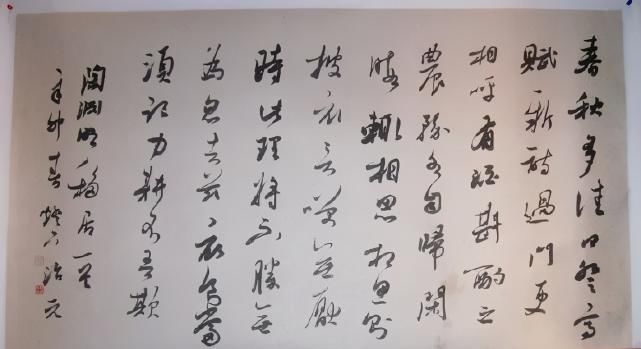 春秋多佳日登高
賦新詩過門更
相呼有酒斟酌之
農務各自歸閑
暇輒相思相思則
披衣言笑無厭
時此理將不勝無
為忽去茲衣食當
須記力耕不吾欺
陶淵明移居一首
辛卯春燈下治元